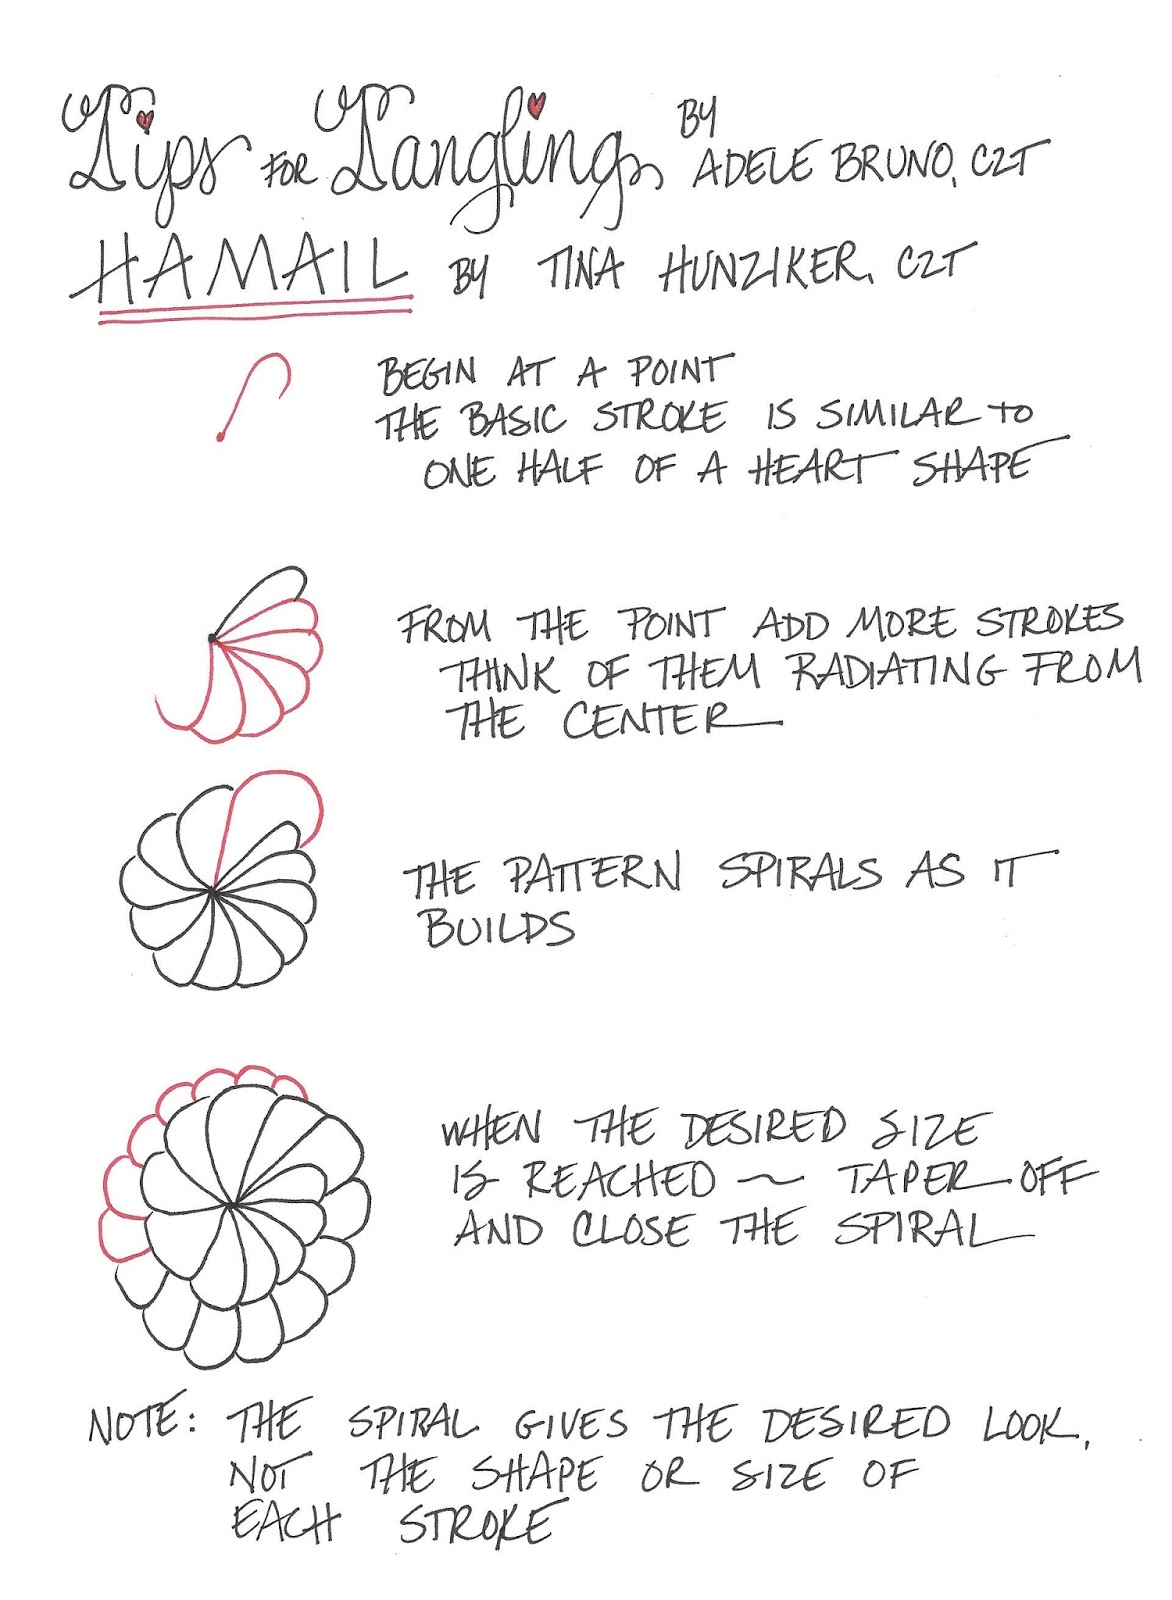 Tips FOR Tangling BY
ADELE BRUNO, CZT
HAMAIL BY TINA HUNZIKER, CZT
BEGIN AT A POINT
THE BASIC STROKE IS SIMILAR TO
ONE HALF OF A HEART SHAPE
FROM THE POINT ADD MORE STROKES
THINK OF THEM RADIATING FROM
THE CENTER
THE PATTERN SPIRALS AS IT
BUILDS
WHEN THE DESIRED SIZE
IS REACHED ~ TAPER OFF
AND CLOSE THE SPIRAL
NOTE: THE SPIRAL GIVES THE DESIRED LOOK,
NOT THE SHAPE OR SIZE OF
EACH STROKE